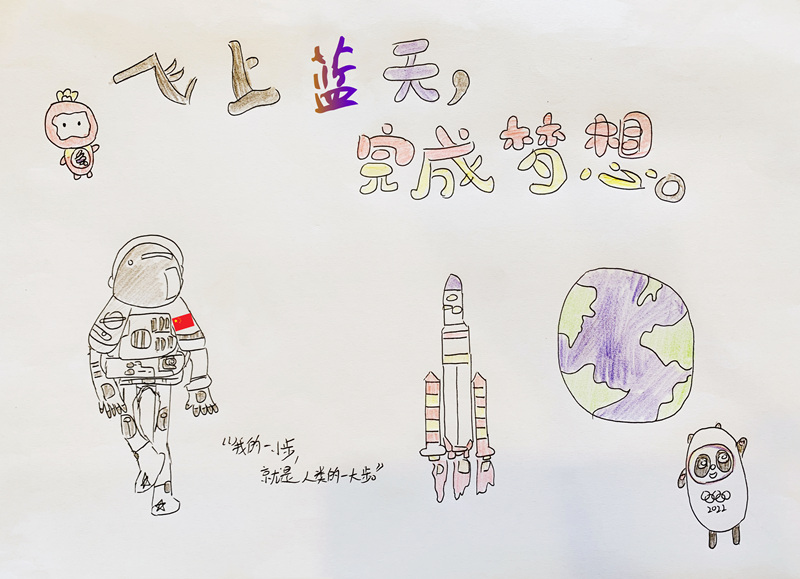 飞上蓝天,
完成梦想。
“我的一小步,
就是人类的一大步。”
2022